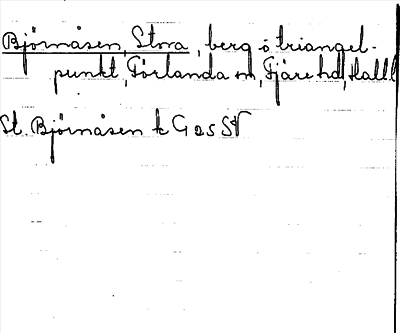 Björnåsen, Stora, berg o triangel-
punkt, Förlanda sn, Fjäre hd, Hall.
St. Björnåsen k G 25 SV